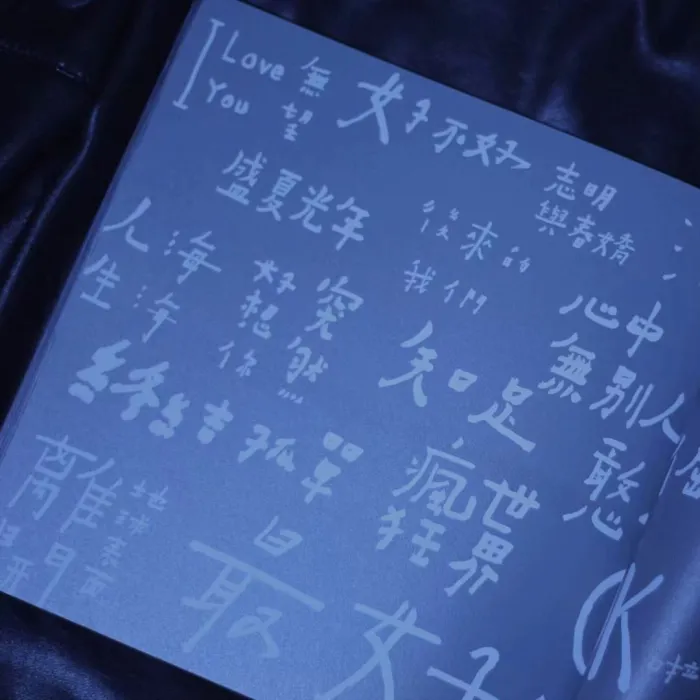 I Love You 無望
好不好
志明與春嬌
盛夏光年
後來的我們
人生海海
好想你
突然
心中無別人
知足
憨人
終結孤單
瘋狂世界
離開地球表面
最
好